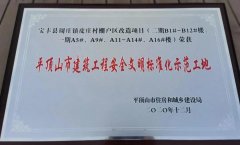 宝丰县周庄镇皮庄村棚户区改造项目（二期B1#-B12#楼
一期A5#、A9#、A11-A14#、A16#楼）荣获
平顶山市建设工程安全文明标准化示范工地
平顶山市住房和城乡建设局
二〇二〇年十二月